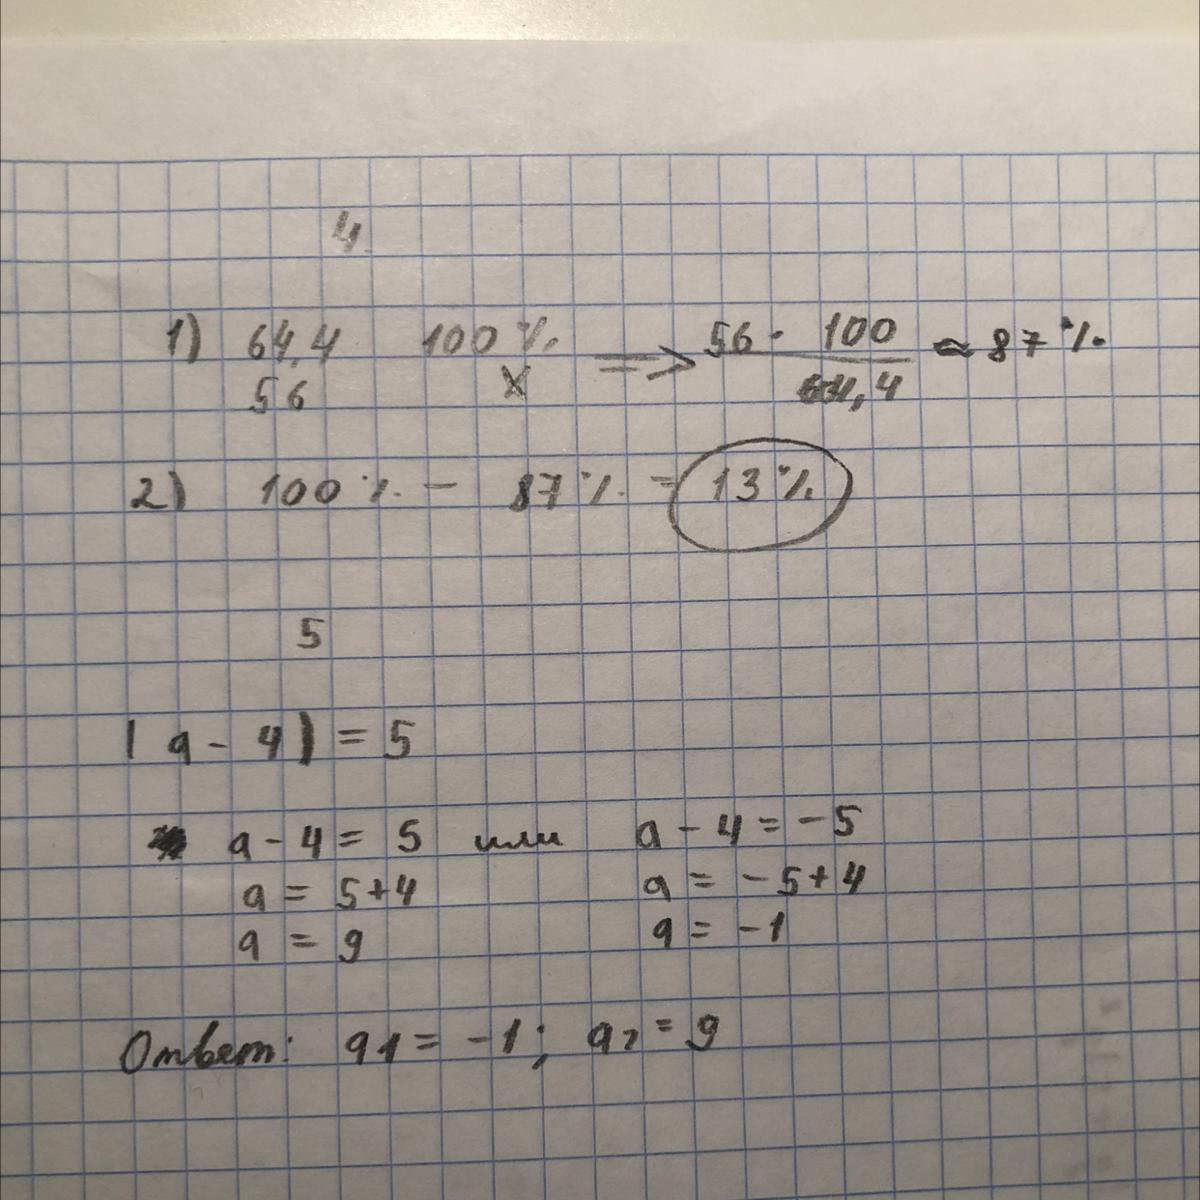 4.
1) 64,4 100% => 56 · 100 ≈ 87%
56 x 64,4
2) 100% - 87% = 13%
5
|a - 4| = 5
a - 4 = 5 или a - 4 = -5
a = 5+4 a = -5+4
a = 9 a = -1
Ответ: a1 = -1; a2 = 9